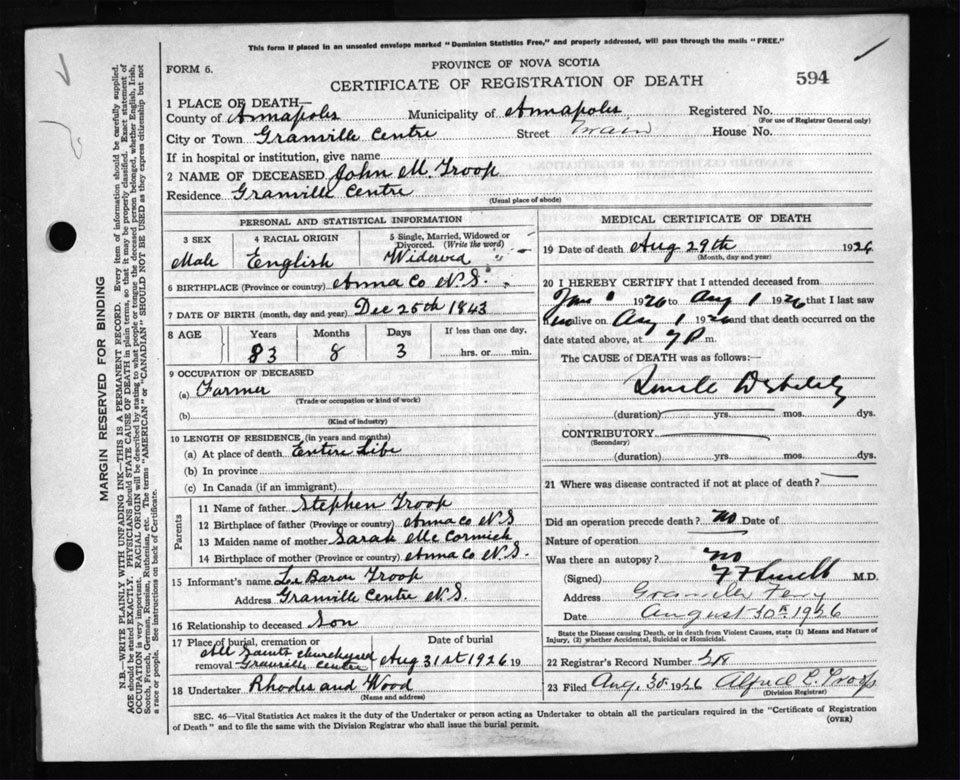 This form if placed in an unsealed envelope marked "Dominion Statistics Free," and properly addressed, will pass through the mails "FREE."
FORM 6.
PROVINCE OF NOVA SCOTIA
CERTIFICATE OF REGISTRATION OF DEATH
594
1 PLACE OF DEATH—
County of Annapolis Municipality of Annapolis Registered No.
(For use of Registrar General only)
City or Town Granville Centre Street Main House No.
If in hospital or institution, give name
2 NAME OF DECEASED John M. Troop
Residence Granville Centre
(Usual place of abode)
PERSONAL AND STATISTICAL INFORMATION
3 SEX 4 RACIAL ORIGIN 5 Single, Married, Widowed or Divorced. (Write the word)
Male English Widowed
6 BIRTHPLACE (Province or country) Anna Co N.S.
7 DATE OF BIRTH (month, day and year) Dec 25th 1843
8 AGE Years Months Days If less than one day,
83 8 3 hrs. or min.
9 OCCUPATION OF DECEASED
(a) Farmer
(Trade or occupation or kind of work)
(b)
(Kind of industry)
10 LENGTH OF RESIDENCE (in years and months)
(a) At place of death Entire Life
(b) In province
(c) In Canada (if an immigrant)
Parents
11 Name of father Stephen Troop
12 Birthplace of father (Province or country) Anna Co N.S
13 Maiden name of mother Sarah McCormick
14 Birthplace of mother (Province or country) Anna Co N.S.
15 Informant's name Le Baron Troop
Address Granville Centre N.S.
16 Relationship to deceased Son
17 Place of burial, cremation or removal All Saints Churchyard Granville Centre Date of burial Aug 31st 1926 19
18 Undertaker Rhodes and Wood
(Name and address)
MEDICAL CERTIFICATE OF DEATH
19 Date of death Aug 29th 1926
(Month, day and year)
20 I HEREBY CERTIFY that I attended deceased from
1926 to Aug 1 1926 that I last saw
h alive on Aug 1 1926 and that death occurred on the
date stated above, at 7 P m.
The CAUSE of DEATH was as follows:
Senile Debility
(duration) yrs. mos. dys.
CONTRIBUTORY
(Secondary)
(duration) yrs. mos. dys.
21 Where was disease contracted if not at place of death?
Did an operation precede death? no Date of
Nature of operation
Was there an autopsy? no
(Signed) M.D.
Address Granville Ferry
Date August 30th 1926
State the Disease causing Death, or in death from Violent Causes, state (1) Means and Nature of
Injury, (2) whether Accidental, Suicidal or Homicidal.
22 Registrar's Record Number
23 Filed Aug. 30 1926 Alfred C. Troop
(Division Registrar)
SEC. 46—Vital Statistics Act makes it the duty of the Undertaker or person acting as Undertaker to obtain all the particulars required in the "Certificate of Registration
of Death" and to file the same with the Division Registrar who shall issue the burial permit.
(OVER)
MARGIN RESERVED FOR BINDING
N.B.—WRITE PLAINLY WITH UNFADING INK—THIS IS A PERMANENT RECORD. Every item of information should be carefully supplied.
AGE should be stated EXACTLY. PHYSICIANS should STATE CAUSE OF DEATH in plain terms, so that it may be properly classified. Exact statement of
OCCUPATION is very important. RACIAL ORIGIN will be described by stating to what people or tongue the deceased person belonged, whether English, Irish,
Scotch, French, German, Russian, Ruthenian, etc. The terms "AMERICAN" or "CANADIAN" SHOULD NOT BE USED as they express citizenship but not
a race or people. See instructions on back of Certificate.